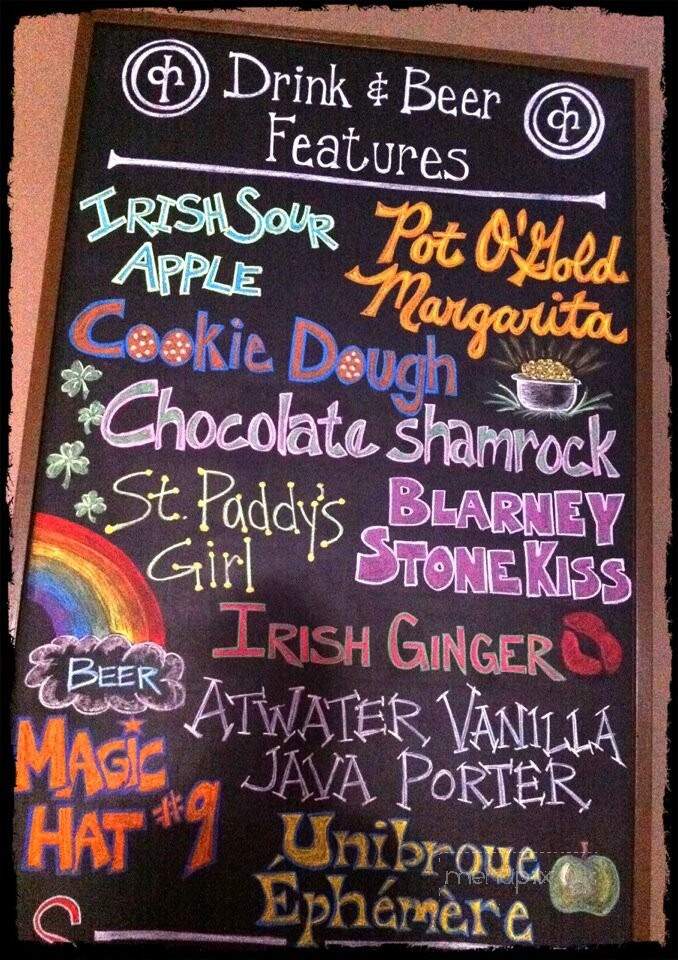 Drink & Beer
Features
IRISH SOUR
APPLE
Pot O'Gold
Margarita
Cookie Dough
Chocolate shamrock
St. Paddy's
Girl
BLARNEY
STONE KISS
IRISH GINGER
BEER
ATWATER VANILLA
JAVA PORTER
MAGIC
HAT #9
Unibroue
Éphémère
menupix